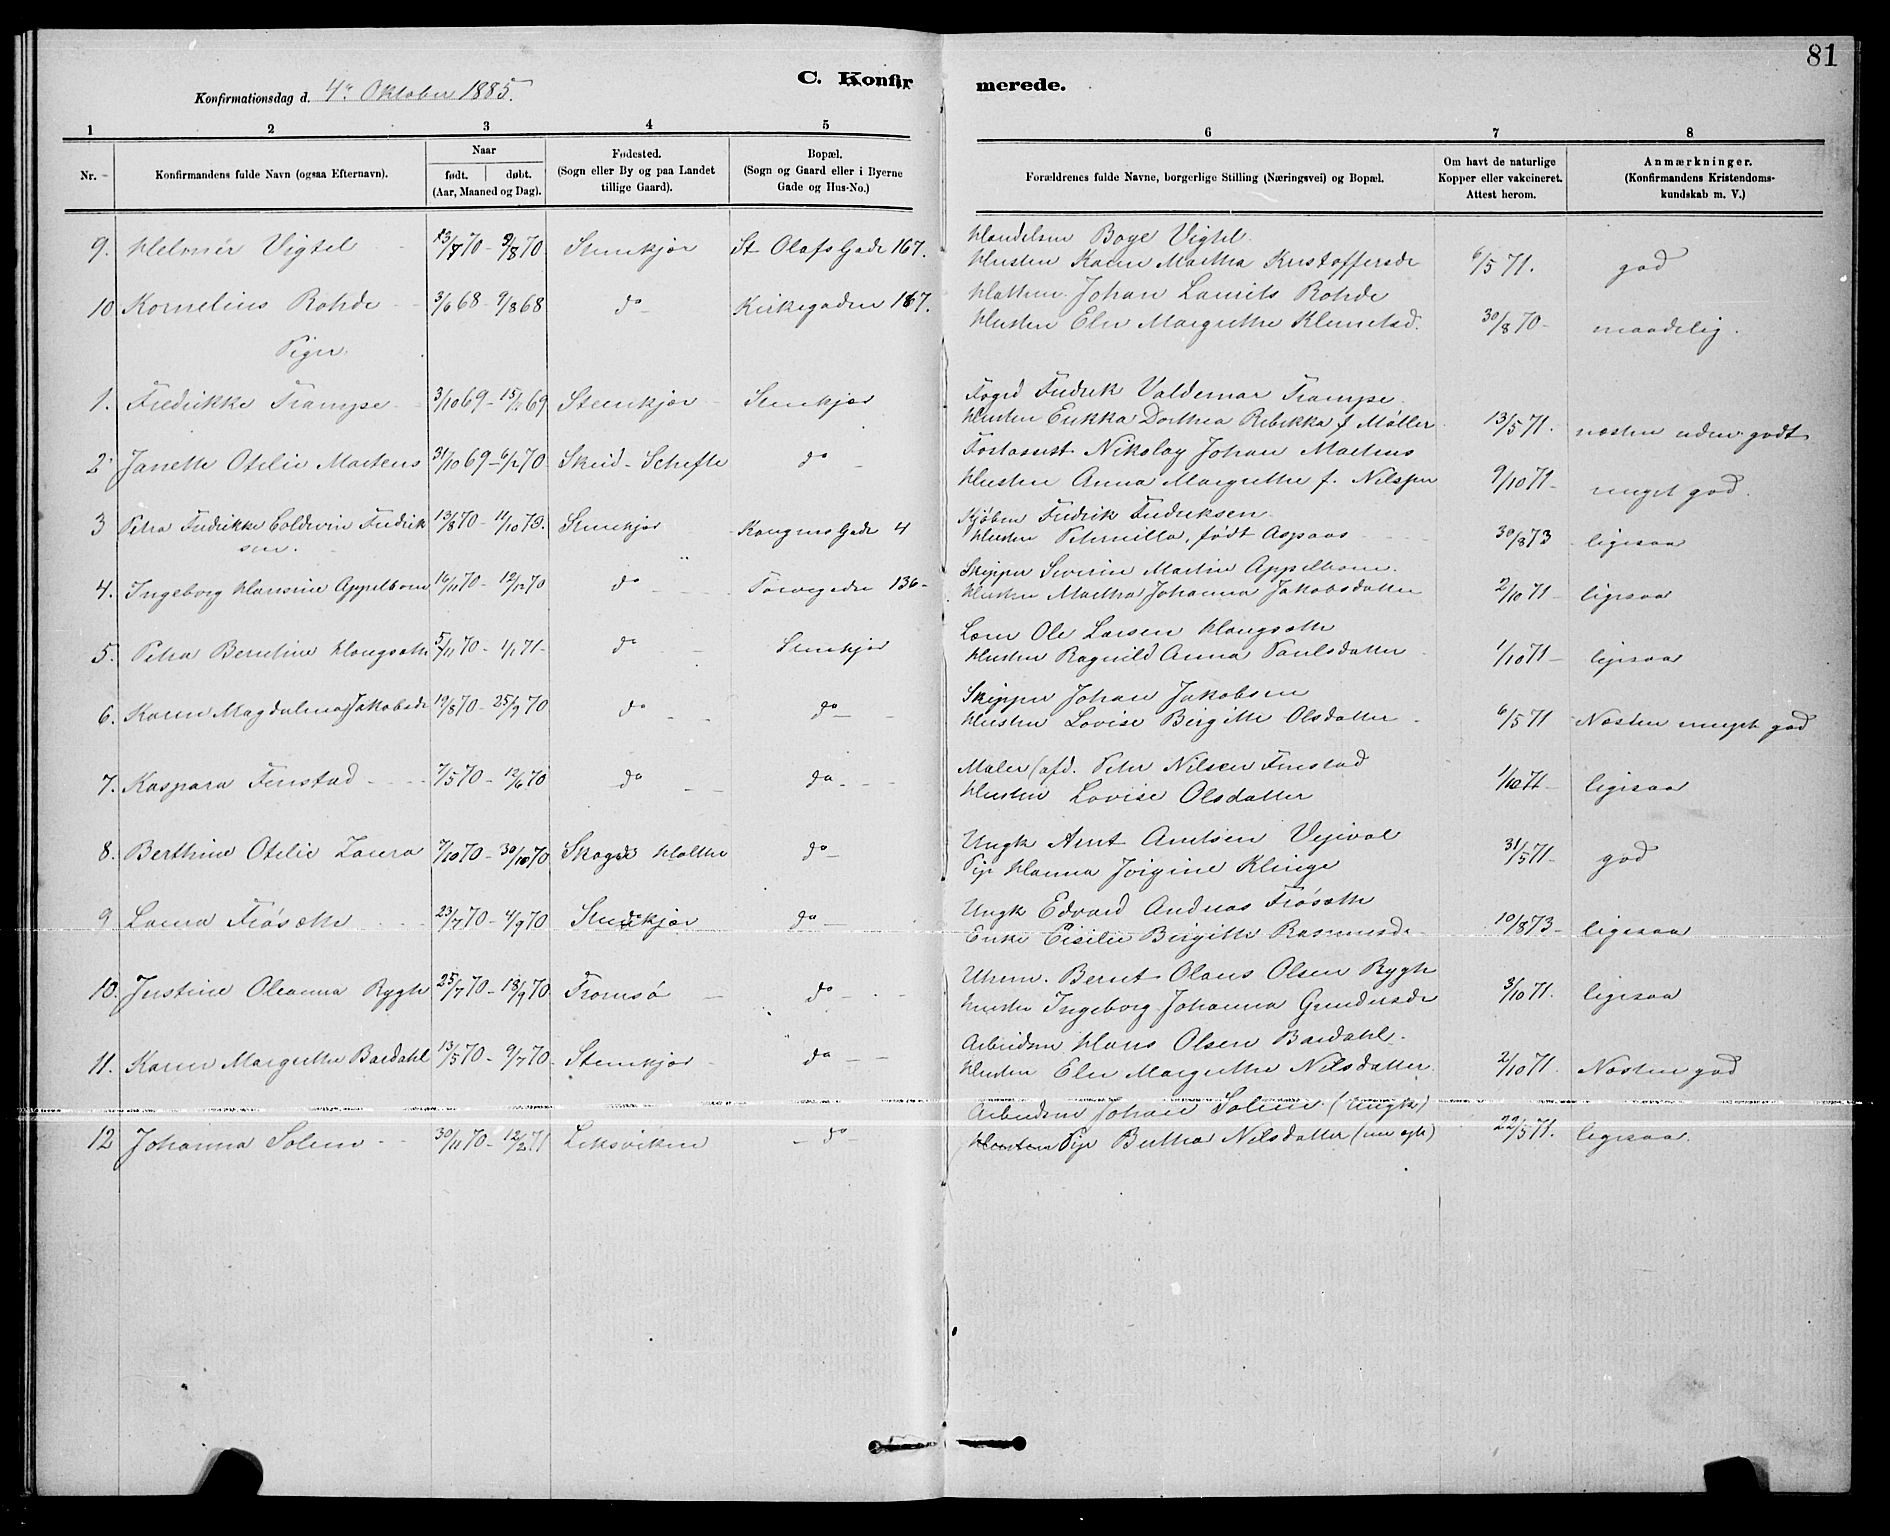 81
C. Konfirmerede.
Konfirmationsdag d. 4de Oktober 1885.
1 2 3 4 5 6 7 8
Nr. Konfirmandens fulde Navn (ogsaa Efternavn). Naar født. døbt. (Aar, Maaned og Dag). Fødested. (Sogn eller By og paa Landet tillige Gaard). Bopæl. (Sogn og Gaard eller i Byerne Gade og Hus-No.) Forældrenes fulde Navne, borgerlige Stilling (Næringsvei) og Bopæl. Om havt de naturlige Kopper eller vakcineret. Attest herom. Anmærkninger. (Konfirmandens Kristendomskundskab m. V.)
9. Helmer Vigtel 13/7 70 - 9/8 70 Stenkjær St Olafs Gade 167. Handelsm Boye Vigtel
Hustru Karen Martha Kristoffersdr 6/5 71. god
10 Kornelius Rohde 3/6 68 - 9/8 68 do Kirkegaden 167. Hattem. Johan Laurits Rohde
Hustru Elen Margrethe Klemetsd. 30/8 70 - maadelig.
Piger.
1. Fredrikke Trampe 3/10 69 - 15/11 69 Stenkjær Stenkjær Fogd Fredrik Valdemar Trampe
Hustru Erikka Dorthea Rebikka f Møller 13/5 71. næsten uden godt
2. Janette Otilie Martens 31/10 69 - 6/1 70 Skeid - Schefte do Forstassist Nikolay Johan Martens
Hustru Anna Margrethe f. Nilssen 9/10 71 - meget god.
3 Petra Fredrikke Coldevin Fredriksen. 13/8 70 - 11/10 70. Stenkjær Kongens Gade 4 Kjøbm Fredrik Fredriksen
Hustru Peternilla, født Aspaas 30/8 73 - ligesaa
4. Ingeborg Hansine Appelbom 16/11 70 - 12/12 70 do Torvegaden 136 - Skipper Severin Martin Appelbom.
Hustru Martha Johanna Jakobsdatter 2/10 71 - ligesaa
5. Petra Berntine Haugsæth 5/11 70 - 4/1 71 - do Stenkjær Lærer Ole Larsen Haugsæth
Hustru Ragnild Anna Paulsdatter 1/10 71 - ligesaa
6. Karen Magdalena Jakobsdr 19/8 70 - 25/9 70 do do Skipper Johan Jakobsen
Hustru Lovise Birgitte Olsdatter 6/5 71 Næsten meget god
7. Kaspara Finstad 7/5 70 - 12/6 70 do do Maler (afd. Peter Nilsen Finstad
Hustru Lovise Olsdatter 1/10 71 - ligesaa
8. Berthine Otilie Laura 7/10 70 - 30/10 70 Skogn Holthe do Ungk Arnt Arntsen Vejval
Pige Hanna Jørgine Klinge 31/5 71 - god
9 Laura Frøsæth 23/7 70 - 4/9 70 Stenkjær do Ungk Edvard Andreas Frøsæth
Enke Cisilie Birgitte Rasmusd. 10/8 73 - ligesaa
10. Justine Oleanna Rygh 25/7 70 - 18/9 70 Tromsø do Urem. Bernt Olaus Olsen Rygh
Hustru Ingeborg Johanna Gundersdr 3/10 71. ligesaa
11. Karen Margrethe Bardahl 13/5 70 - 9/7 70. Stenkjær do Arbeidsm Hans Olsen Bardahl.
Hustru Elen Margrethe Nilsdatter 2/10 71. Næsten god
12 Johanna Solem 30/11 70 - 12/2 71 Leksviken do Arbeidsm Johan Solem (Ungk)
Hustru Pige Bertha Nilsdatter 22/5 71. ligesaa.